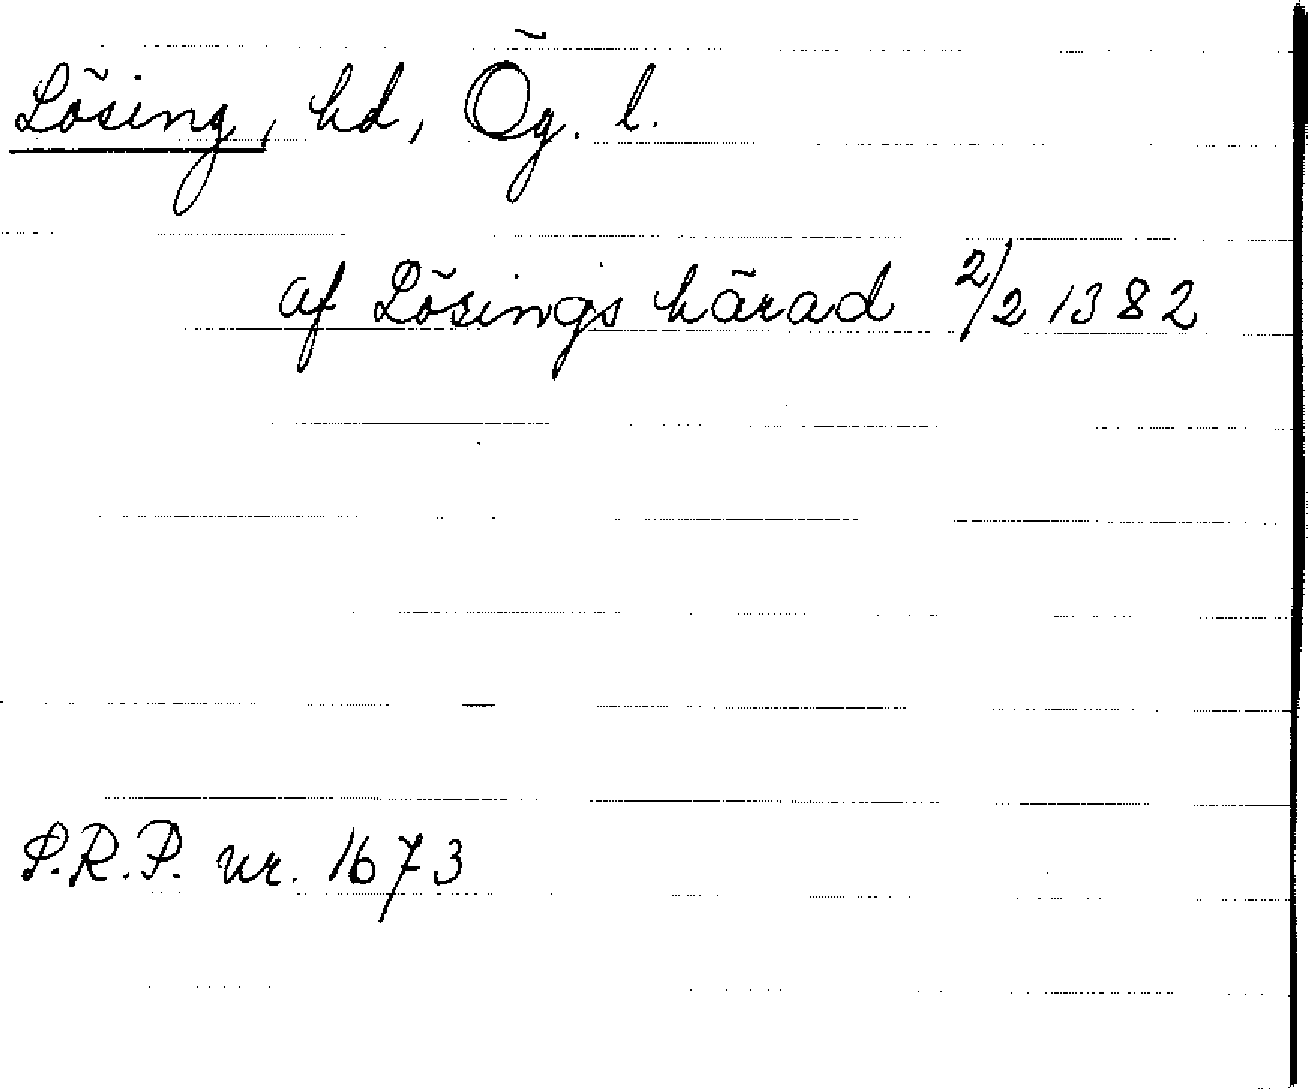 Lösing, hd, Ög. l.
af Lösings härad 2/2 1382
S.R.P. nr. 1673